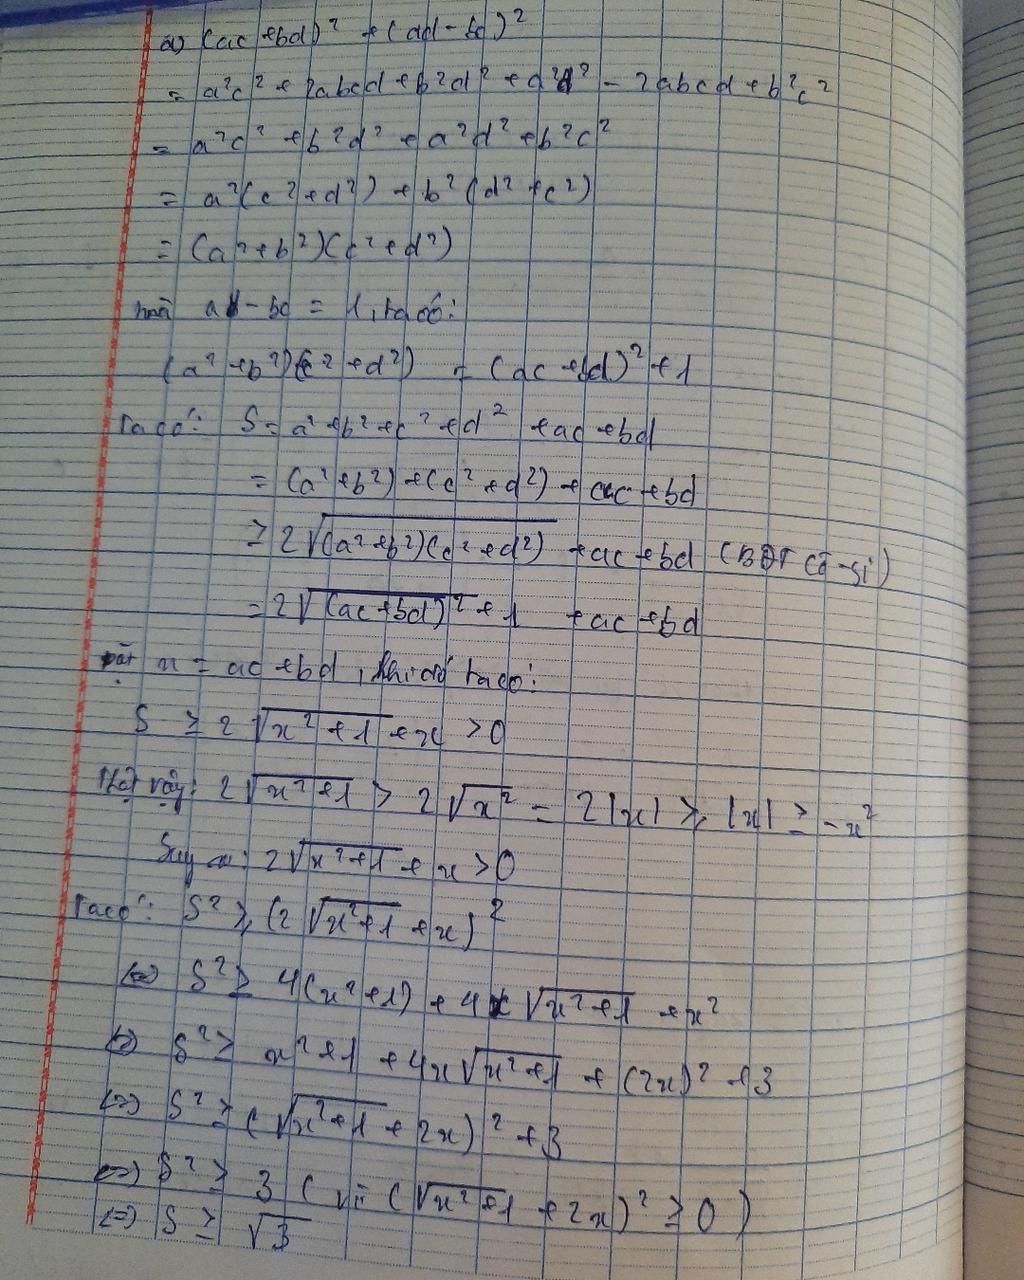 a) (ac + bd)² + (ad - bc)²
= a²c² + 2abcd + b²d² + a²d² - 2abcd + b²c²
= a²c² + b²d² + a²d² + b²c²
= a²(c² + d²) + b²(d² + c²)
= (a² + b²)(c² + d²)
mà ad - bc = 1, ta có:
(a² + b²)(c² + d²) = (ac + bd)² + 1
Ta có: S = a² + b² + c² + d² + ac + bd
= (a² + b²) + (c² + d²) + ac + bd
≥ 2√(a² + b²)(c² + d²) + ac + bd (BĐT Cô-si)
= 2√(ac + bd)² + 1 + ac + bd
Đặt x = ac + bd, khi đó ta có:
S ≥ 2√x² + 1 + x > 0
Thật vậy: 2√x² + 1 > 2√x² = 2|x| ≥ |x| ≥ -x²
Suy ra: 2√x² + 1 + x > 0
Ta có: S² ≥ (2√x² + 1 + x)²
⇔ S² ≥ 4(x² + 1) + 4x√x² + 1 + x²
⇔ S² ≥ x² + 1 + 4x√x² + 1 + (2x)² + 3
⇔ S² ≥ (√x² + 1 + 2x)² + 3
⇔ S² ≥ 3 (vì (√x² + 1 + 2x)² ≥ 0)
⇔ S ≥ √3